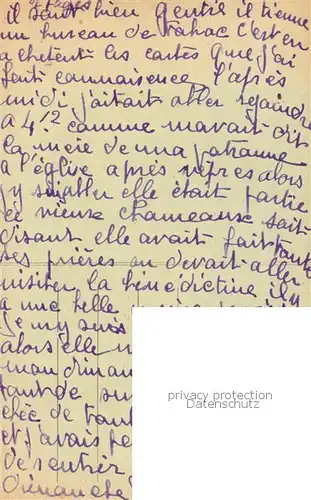 il sont bien gentil il tienne
un bureau de tabac c'est en
achetent les cartes que j'ai
fait connaisence l'après
midi j'aitait aller rejoindre
a 4h 1/2 comme mavait dit
la mère de ma patronne
a l'église après vepres alors
j'y suis aller elle était partie
ce vieux chameaux soit
disant elle avait fait toute
ses prières on devait aller
visiter la bénédictine il y
a une belle
je my suis
alors elle m
mon diman
tant de su
chée de tout
et j'avais pe
de rentrer
Dimanche
privacy protection
Datenschutz